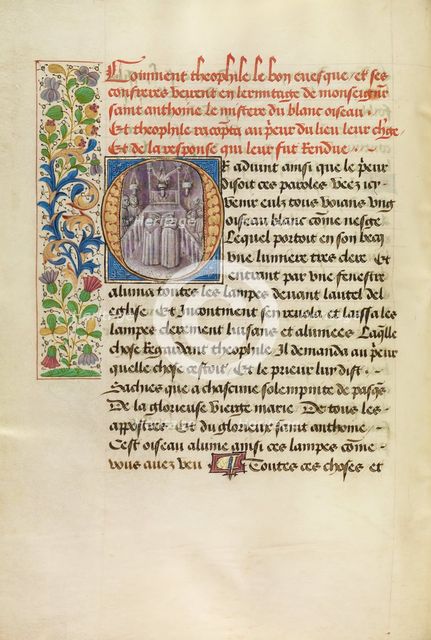 Comment theophile le bon euesque / et ses
confreres veirent en lermitage de monseignr
saint anthoine le mistere du blanc oiseau
Et theophile racōpta au p̄eur du lieu leur
Et de la response qui leur fut rendue
Et aduint ainsi que le p̄eur
disoit ces paroles veez icy
venir eulz tous voians vng
oiseau blanc cōme neige
Lequel portoit en son becq
vne lumiere tres clere Et
entrant par vne fenestre
aluma toutes les lampes deuant lautel de
eglise Et Incontinent sen reuola et laissa les
lampes clerement luisans et alumees Laq̄lle
chose Regardant theophile Il demanda au p̄eur
quelle chose cestoit Et le prieur lui dist
Sachies que a chascune solempnite de pasq̄s
De la glorieuse vierge marie De tous les
appostres Et du glorieux saint anthoine
Cest oiseau alume ainsi ces lampes cōme
vous auez veu Toutes ces choses et
heritage